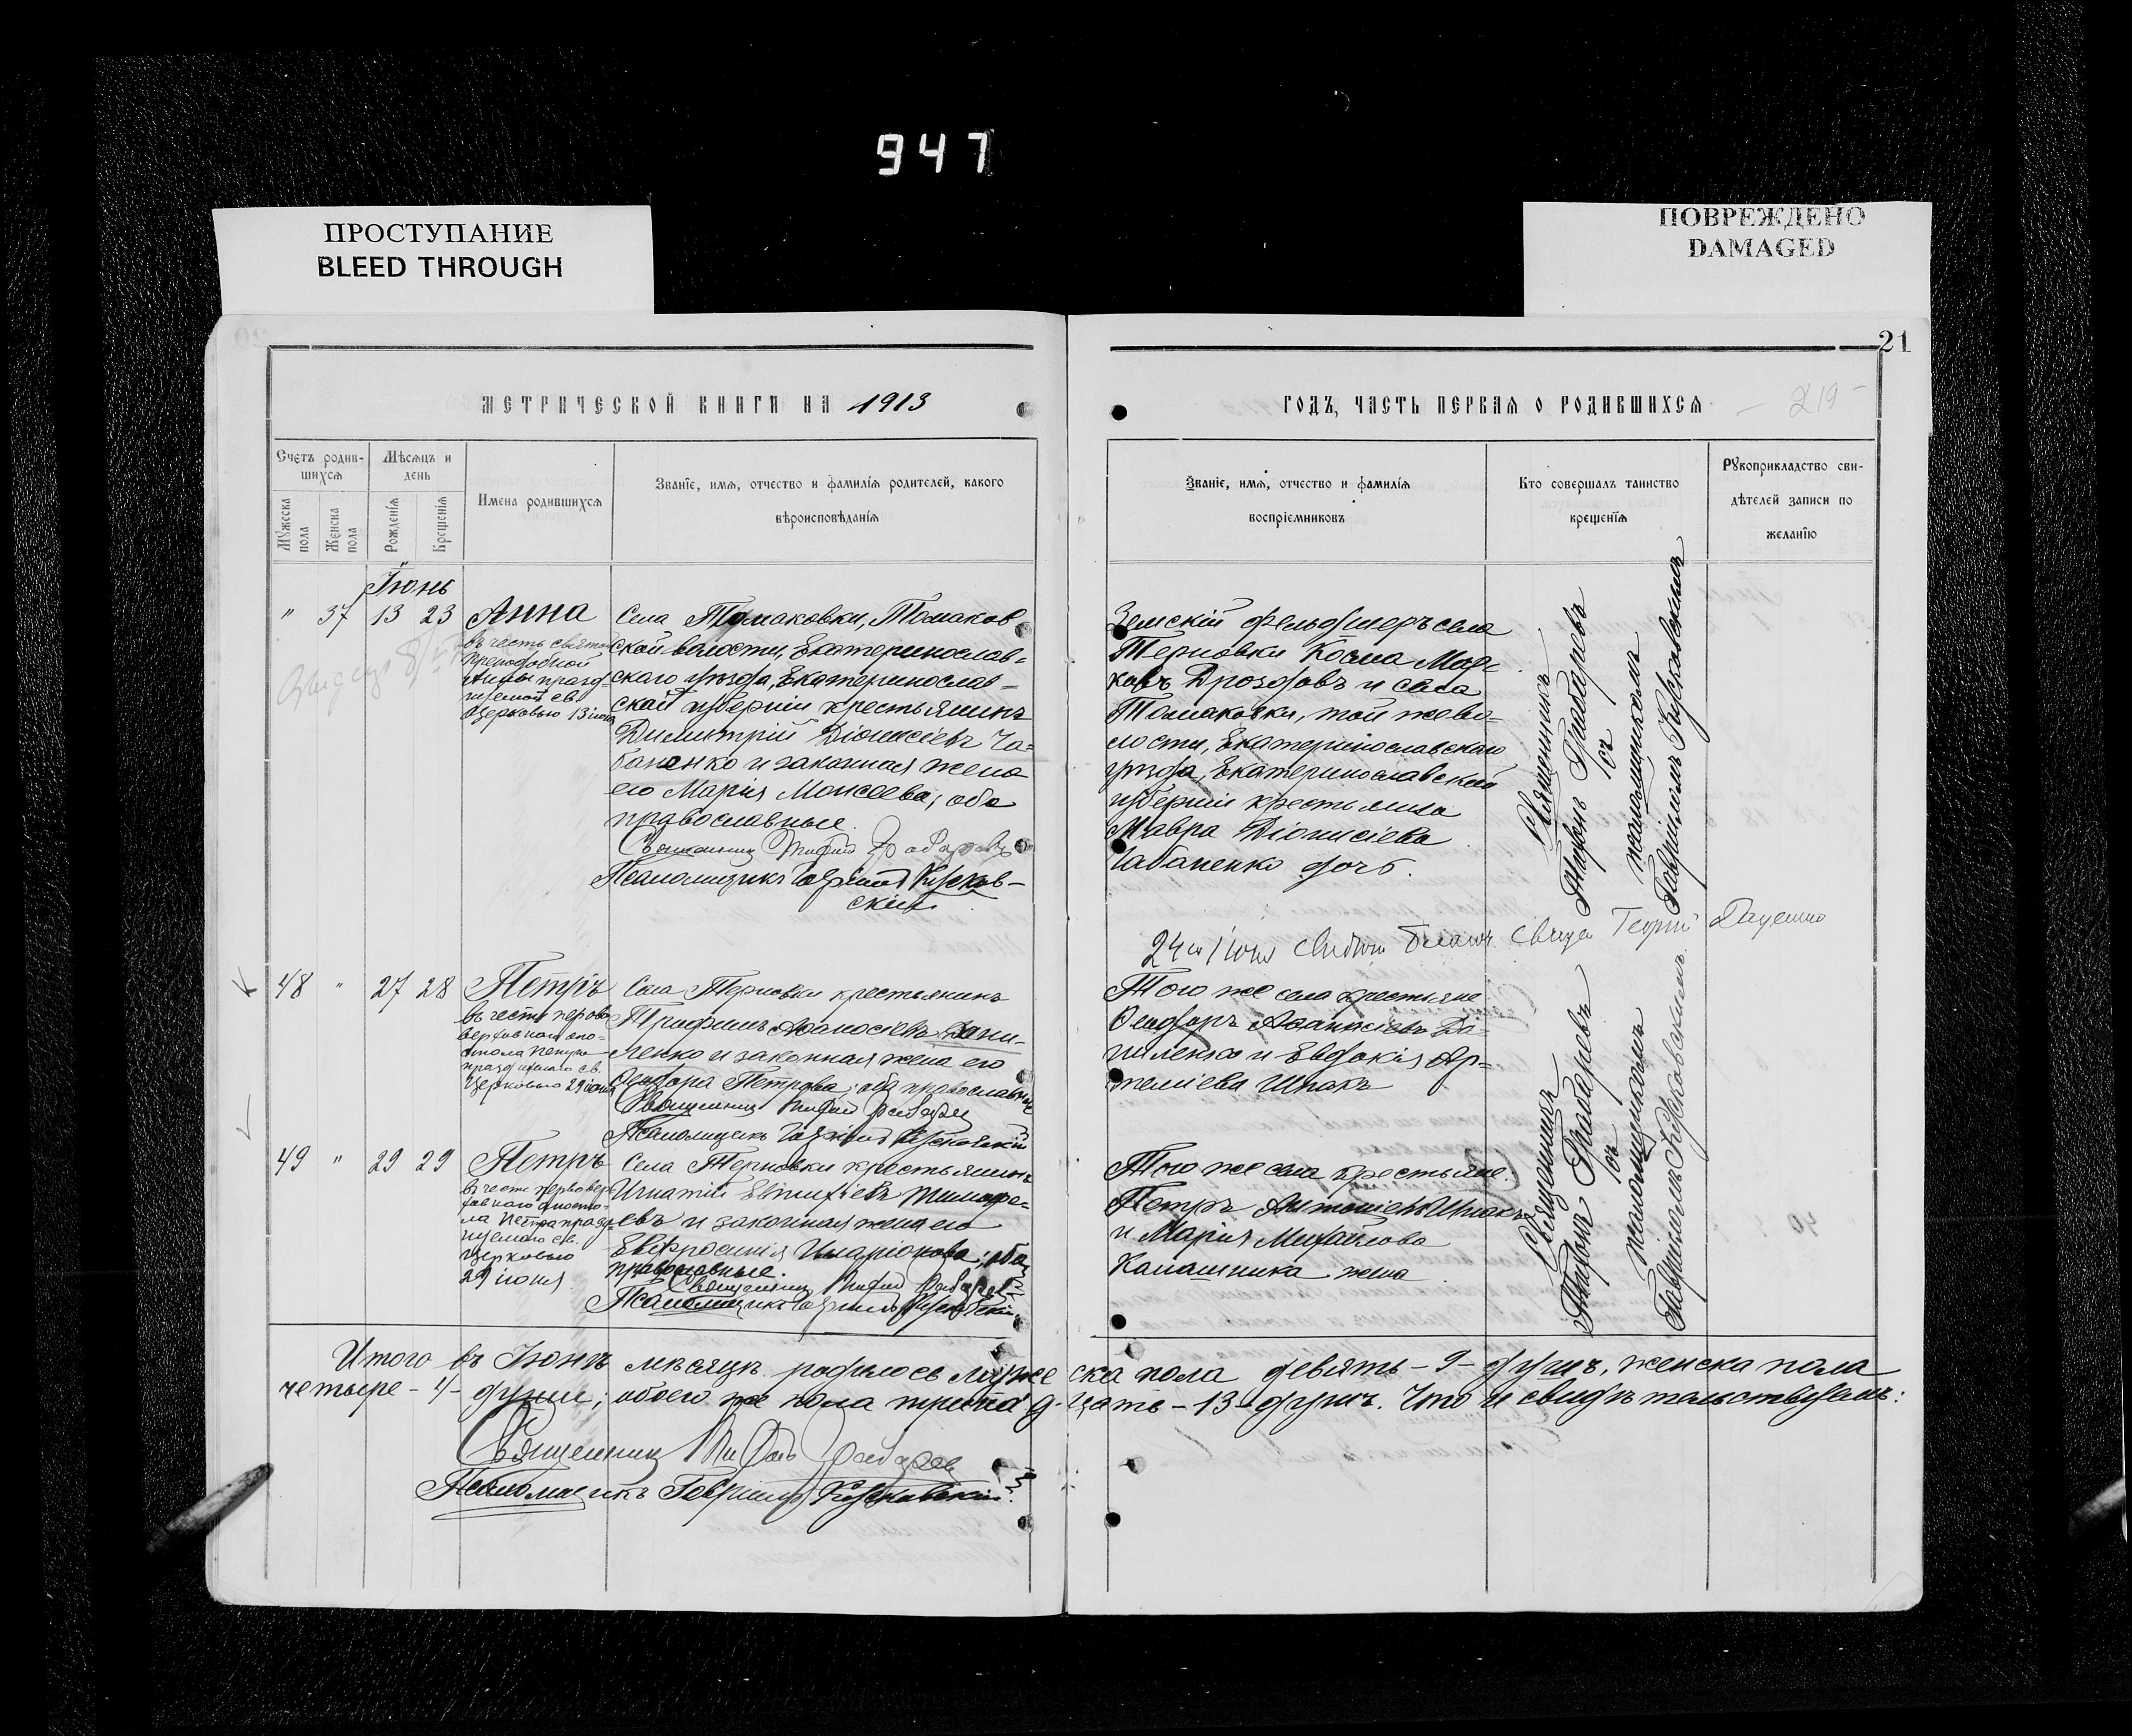 947
ПРОСТУПАНИЕ
BLEED THROUGH
ПОВРЕЖДЕНО
DAMAGED
21
МЕТРИЧЕСКОЙ КНИГИ НА 1913
ГОДЪ, ЧАСТЬ ПЕРВАЯ О РОДИВШИХСЯ
219
Счетъ родив-
шихся
Мѣсяцъ и
день
Мужеска
пола
Женска
пола
Рожденія
Крещенія
Имена родившихся
Званіе, имя, отчество и фамилія родителей, какого
вѣроисповѣданія
Званіе, имя, отчество и фамилія
воспріємниковъ
Кто совершалъ таинство
крещенія
Рукоприкладство сви-
дѣтелей записи по
желанію
Іюнь
" 37 13 23 Анна
въ честь святой
преподобной
Анны празд-
нуемой св.
Церковью 13 іюня
Села Томаковки, Томаков
ской волости, Екатеринослав-
скаго уѣзда, Екатеринослав-
ской губерніи крестьянинъ
Димитрій Діонисіевъ Ча-
баненко и законная жена
его Марія Моисеева; оба
православные.
Священникъ Трифонъ Грабаревъ
Псаломщикъ Гавріилъ Кусков-
скій.
Земскій фельдшеръ села
Терновки Косма Мар-
ковъ Дроздовъ и села
Томаковки, той же во-
лости, Екатеринославскаго
уѣзда, Екатеринославской
губерніи крестьянка
Мавра Діонисіева
Чабаненко дочь.
Священникъ
Трифонъ Грабаревъ
съ
псаломщикомъ
Гавріиломъ Кусковскимъ
48 " 27 28 Петръ
въ честь перво
верховнаго апо-
стола Петра
празднуемаго св.
Церковью 29 іюня
Села Терновки крестьянинъ
Трифонъ Аѳанасіевъ Дани-
ленко и законная жена его
Ѳеодора Петрова; оба православные
Священникъ Трифонъ Грабаревъ
Псаломщикъ Гавріилъ Кусковскій
Того же села крестьяне
Ѳеодоръ Аѳанасіевъ Да-
ниленко и Евдокія Ар-
теміева Шпакъ
Священникъ
Трифонъ Грабаревъ
съ
псаломщикомъ
Гавріиломъ Кусковскимъ
49 " 29 29 Петръ
въ честь первовер
ховнаго апосто-
ла Петра празд-
нуемаго св.
Церковью
29 іюня
Села Терновки крестьянинъ
Игнатій Евѳиміевъ Тимофе-
евъ и законная жена его
Евфросинія Иларіонова; оба
православные.
Священникъ Трифонъ Грабаревъ
Псаломщикъ Гавріилъ Кусковскій
Того же села крестьяне:
Петръ Антоніевъ Шпакъ
и Марія Михайлова
Калашника жена
Священникъ
Трифонъ Грабаревъ
съ
псаломщикомъ
Гавріиломъ Кусковскимъ
Итого въ Іюнѣ мѣсяцѣ родилось мужеска пола девять - 9 - душъ, женска пола
четыре - 4 - души; обоего же пола тринадцать - 13 - душъ. Что и свидѣтельствуемъ:
Священникъ Трифонъ Грабаревъ
Псаломщикъ Гавріилъ Кусковскій.